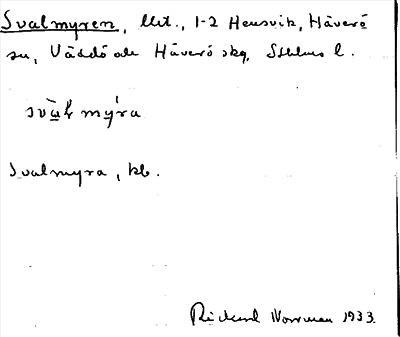 Svalmyren, lht., 1-2 Hensvik, Häverö
sn, Väddö och Häverö skg, Sthlms l.
svàḷmy̆́ra
Svalmyra, kb.
Rickard Norrman 1933.